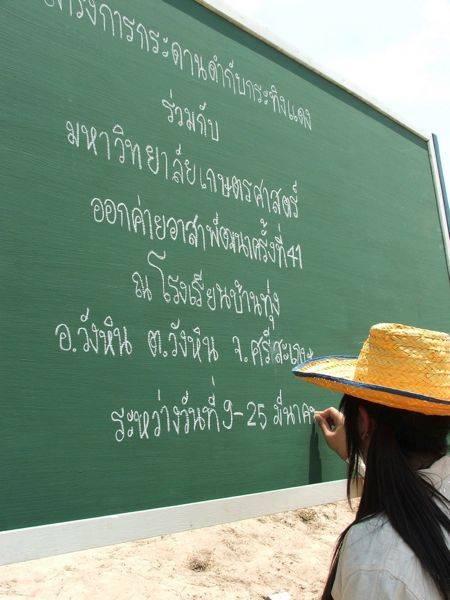 โครงการกระดานดำกับกระทิงแดง
ร่วมกับ
มหาวิทยาลัยเกษตรศาสตร์
ออกค่ายอาสาพัฒนาครั้งที่ 41
ณ โรงเรียนบ้านทุ่ง
อ.วังหิน ต.วังหิน จ.ศรีสะเกษ
ระหว่างวันที่ 9-25 มีนาคม